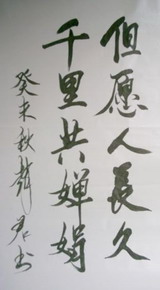 但愿人長久
千里共婵娟
癸未秋 君书